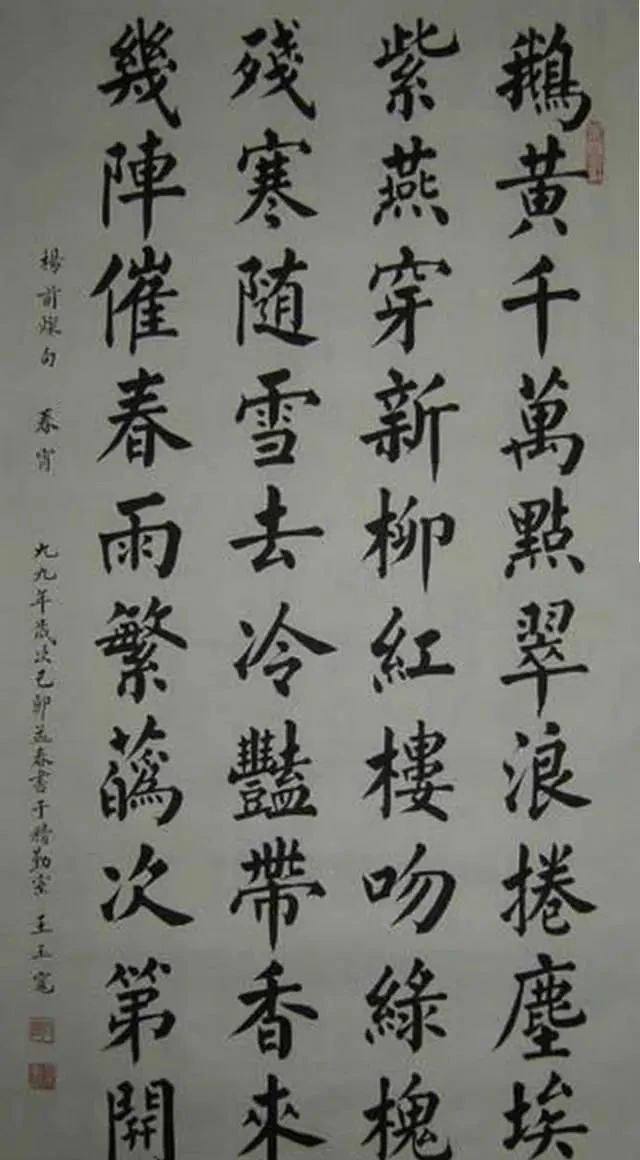 鵝黃千萬點翠浪捲塵埃
紫燕穿新柳紅樓吻綠槐
殘寒隨雪去冷豔帶香來
幾陣催春雨繁蘤次第開
楊前燦句 春宵 九九年歲次己卯孟春書于精勤室 王玉寬